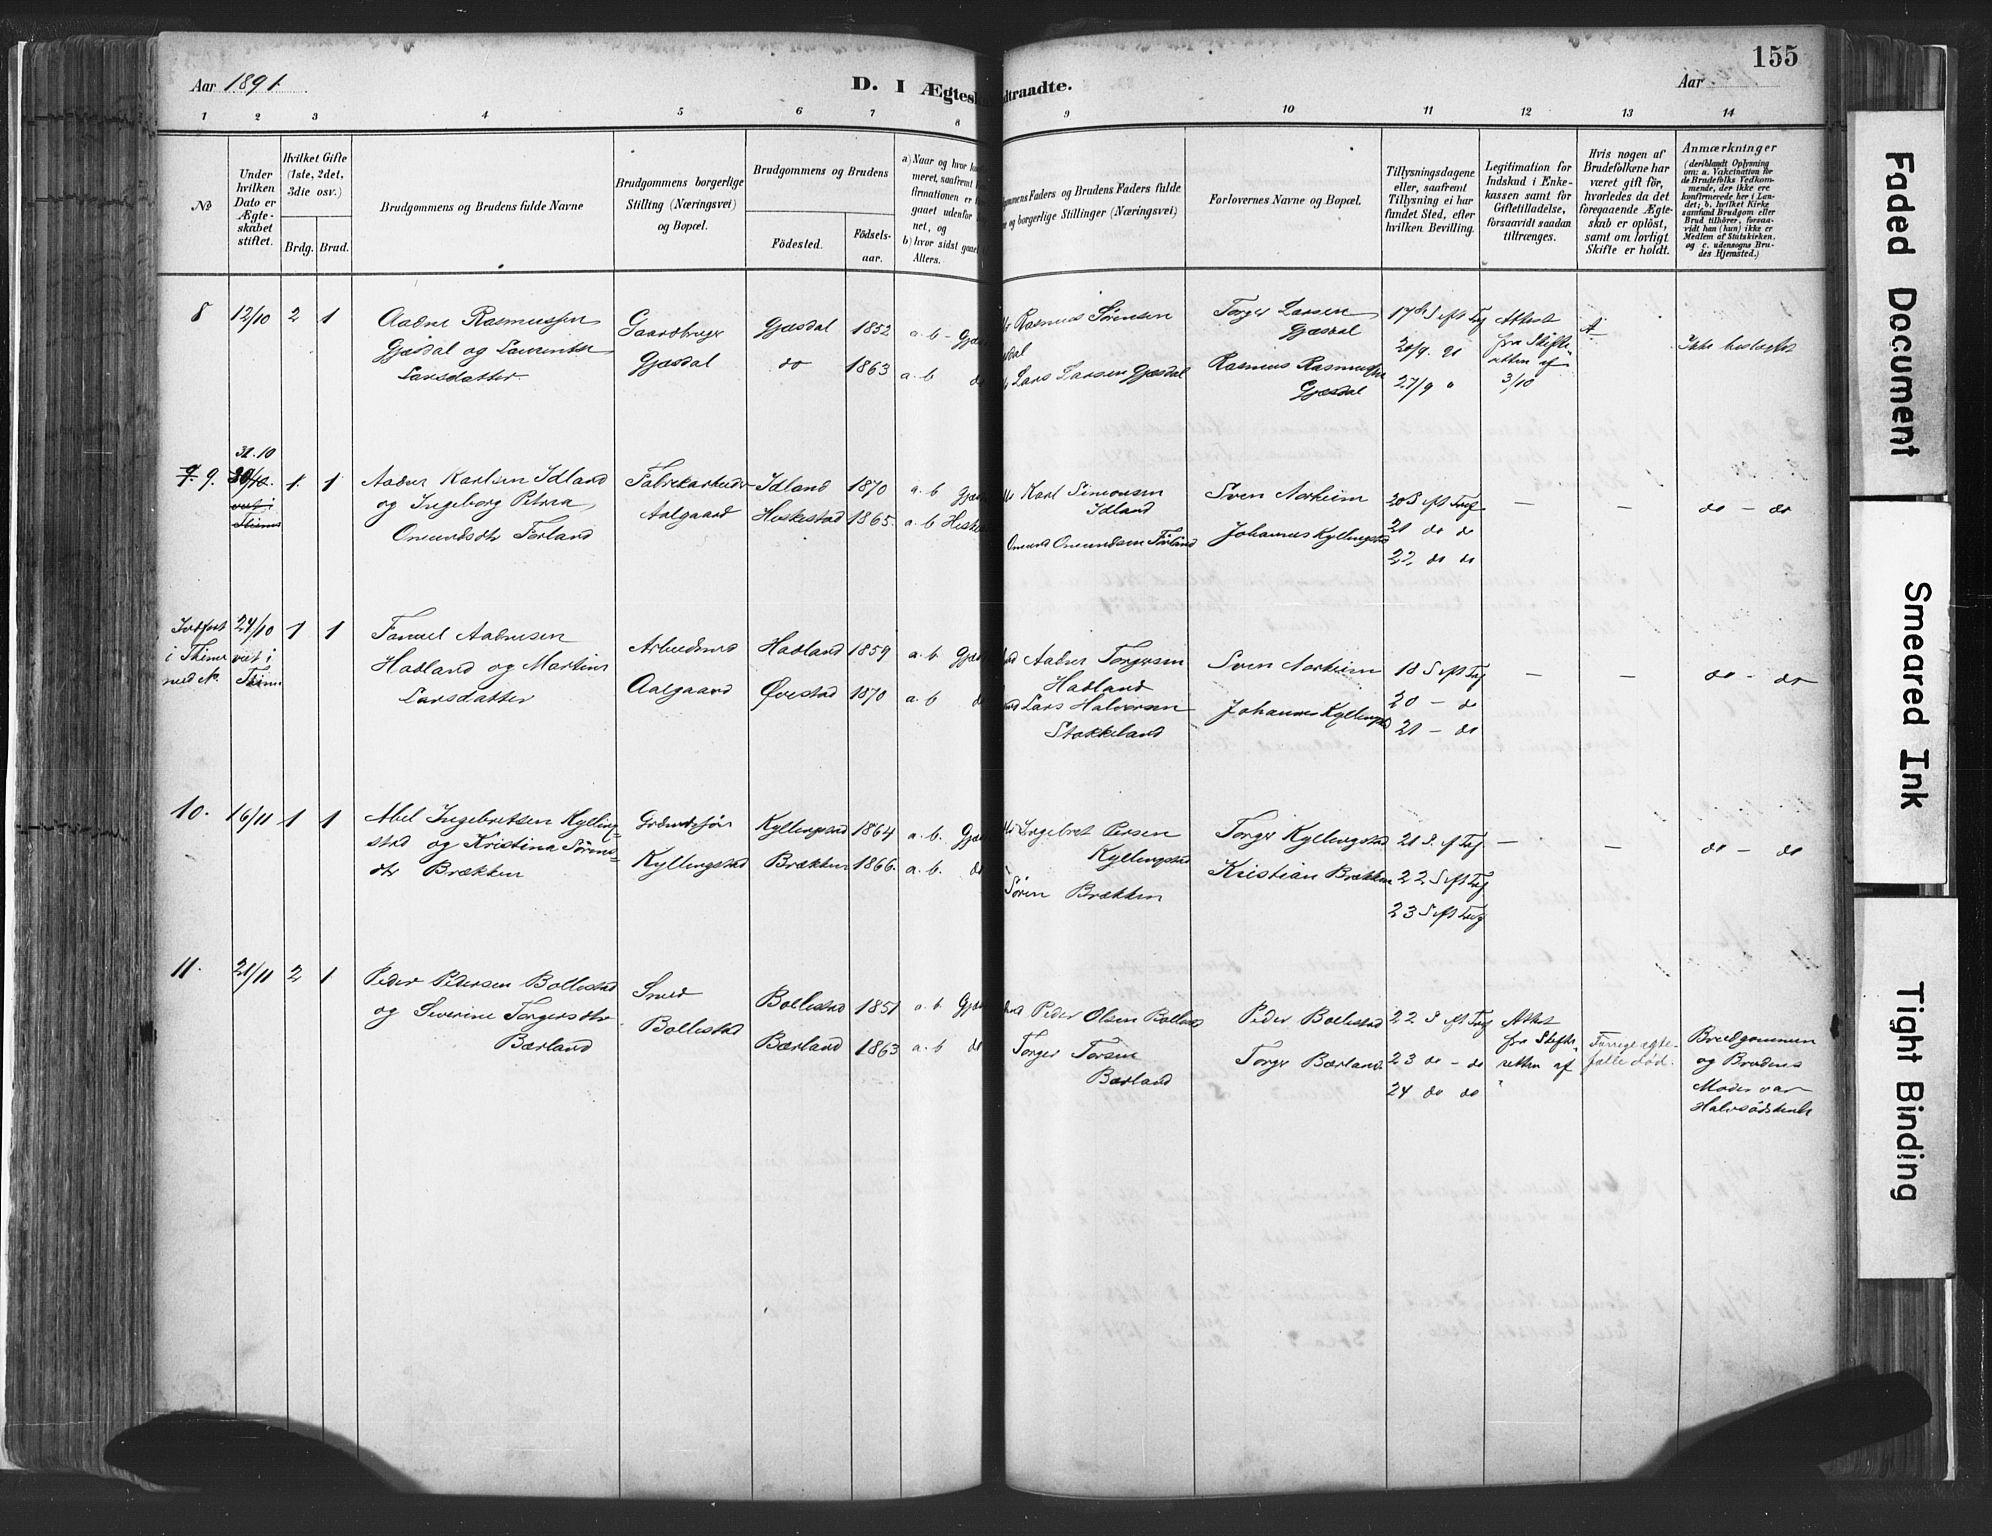 155
Aar 1891.
D. I Ægtesk
dtraadte.
Aar
1
2
3
4
5
6
7
8
9
10
11
12
13
14
No
Under
hvilken
Dato er
Ægte-
skabet
stiftet.
Hvilket Gifte
(1ste, 2det,
3die osv.)
Brdg. Brud.
Brudgommens og Brudens fulde Navne
Brudgommens borgerlige
Stilling (Næringsvei)
og Bopæl.
Brudgommens og Brudens
Fødested.
Fødsels-
aar.
a) Naar og hvor
meret, saafremt
firmationen er
gaaet udenfor
net, og
b) hvor sidst gaaet
Alters.
mmens Faders og Brudens Faders fulde
og borgerlige Stillinger (Næringsvei)
Forlovernes Navne og Bopæl.
Tillysningsdagene
eller, saafremt
Tillysning ei har
fundet Sted, efter
hvilken Bevilling.
Legitimation for
Indskud i Enke-
kassen samt for
Giftetilladelse,
forsaavidt saadan
tiltrænges.
Hvis nogen af
Brudefolkene har
været gift før,
hvorledes da det
foregaaende Ægte-
skab er opløst,
samt om lovligt
Skifte er holdt.
Anmærkninger
(deriblandt Oplysning
om: a. Vakcination for
de Brudefolks Vedkom-
mende, der ikke ere
konfirmerede her i Lan-
det; b. hvilket Kirke
samfund Brudgom eller
Brud tilhører, forsaa-
vidt han (hun) ikke er
Medlem af Statskirken,
og c. udensogns Bru-
des Hjemsted.)
8 12/10 2 1
Aadne Rasmussen
Gjesdal og Laurentse
Larsdatter
Gaardbruger
Gjesdal
Gjesdal 1852
do 1863
a. b - Gjes
a. b do
Rasmus Sørensen
sdal
Lars Larsen Gjesdal
Torger Larsen
Gjesdal
Rasmus Rasmussen
Gjesdal
17de S eft Trf
20/9. 91
27/9 "
Attest
fra Skifte-
retten af
3/10
Ikke beslægtet
31.10
9. 1 1
Aadne Karlsen Idland
og Ingeborg Petrea
OmundsdtrFørland
Fabrikarbeider
Aalgaard
Idland 1870
Heskestad 1865.
a. b Gjes
a. b Heske
Karl Simonsen
Idland
Omund Omundsen Førland
Sven Aarheim
Johannes Kyllingstad
20 S eft Tref
21 do do
22. do do
—
—
do – do
Indført
i Thime
med No.
24/10 1 1
viet i
Thime
Aadnesen
Hadland og Martine
Larsdatter
Arbeidsmd
Aalgaard
Hadland 1859
Øvestad 1870
a. b. Gjes
a. b do
Aadne Torgersen
Hadland
Lars Halvorsen
Stokkeland
Sven Aarheim
Johannes Kyllingstad
18 S eft Trf
20 – do
21 – do
—
—
do – do
10. 16/11 1 1
Abel Ingebretsen Kylling-
stad og Kristina Sørens-
dtr Brækken
Kyllingstad
Kyllingstad 1864
Brækken 1866.
a. b. Gjes
a. b. do
Ingebret Persen
Kyllingstad
Søren Brækken
Torger Kyllingstad
Kristian Brækken
21 S. eft Trf
22 S eft Trf
23 S eft Trf
—
—
do – do
11. 21/11 2 1
Peder Pedersen Bollestad
og Severine Torgersdtr
Bærland
Smed
Bollestad
Bollestad 1851
Bærland 1863
a. b. Gjes
a. b do
Peder Olsen Bollestad
Torger Torsen
Bærland
Peder Bollestad
Torger Bærland
22 S eft Trf
23 do – do
24 do do
Attest
fra Skifte-
retten af
Forrige ægte-
fælle død.
Brudgommen
og Brudens
Moder var
Halvsødskende
Faded Document
Smeared Ink
Tight Binding